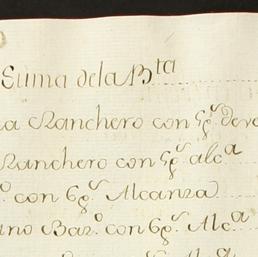 Suma de la B.ta
a Ranchero con 5p.r deve
Ranchero con 5p.r alc.a
.o con 6p.r Alcanza
no Baz.o con 6p.r Alc.a